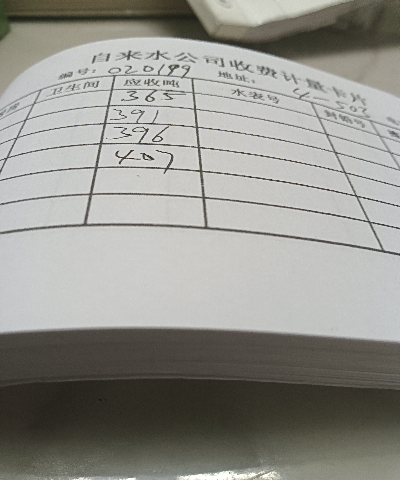 自来水公司收费计量卡片
编号: 020199 地址: 4-503
卫生间 应收吨 水表号 封铅号
365
391
396
407